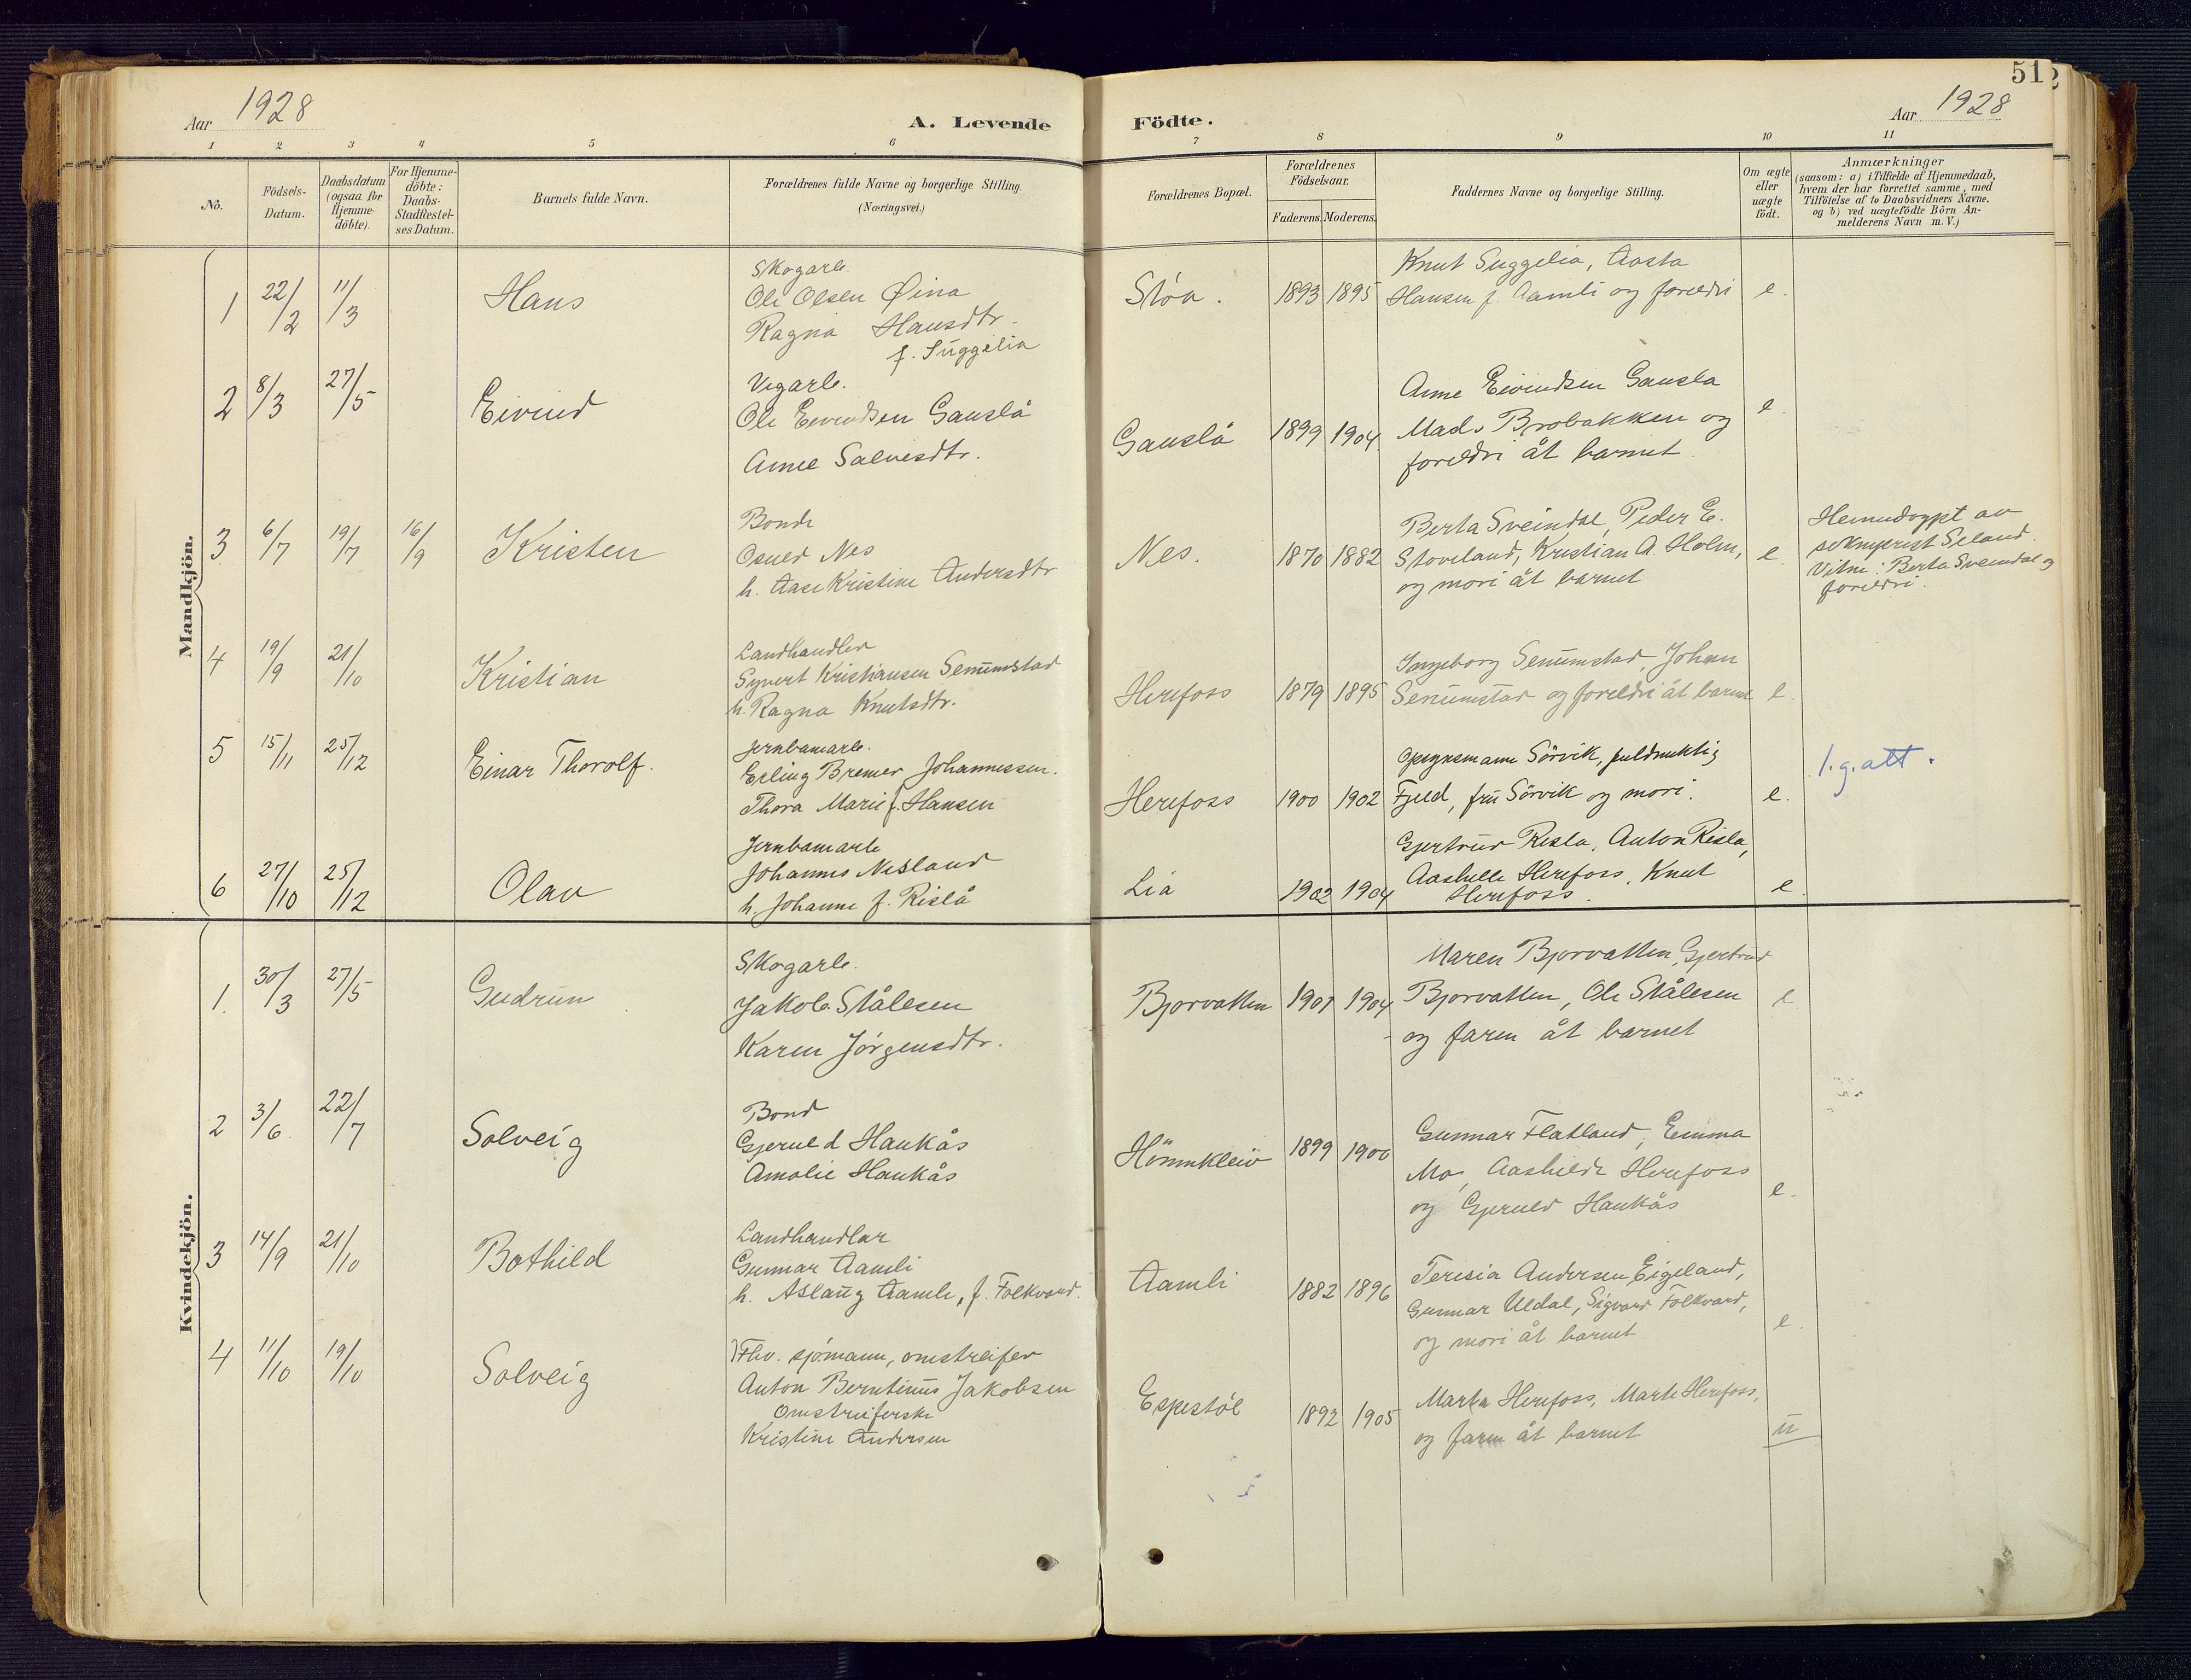 Aar 1928
A. Levende
Födte.
Aar 1928
51
1 2 3 4 5 6 7 8 9 10 11
No.
Födsels-
Datum.
Daabsdatum
(ogsaa for
Hjemme-
döbte).
For Hjemme-
döbte:
Daabs-
Stadfæstel-
ses Datum.
Barnets fulde Navn.
Forældrenes fulde Navne og borgerlige Stilling.
(Næringsvei.)
Forældrenes Bopæl.
Forældrenes
Födselsaar.
Faderens. Moderens.
Faddernes Navne og borgerlige Stilling.
Om ægte
eller
uægte
födt.
Anmærkninger
(saasom: a) i Tilfælde af Hjemmedaab,
hvem der har forrettet samme, med
Tilföielse af to Daabsvidners Navne.
og b) ved uægtefödte Börn An-
melderens Navn m. V.)
Mandkjön.
1 22/2 11/3 Hans
Skogarb.
Ole Olsen Øina
Ragna Hansdtr.
f. Suggelia
Stöa. 1893 1895
Knut Suggelia, Aasta
Hansen f. Aamli og foreldri
e.
2 8/3 27/5 Eivind
Vegarb.
Ole Eivindsen Gauslå
Anne Salvesdtr.
Gauslå 1899 1904.
Anne Eivindsen Gausla
Mads Brobakken og
foreldri åt barnet.
e.
3 6/7 19/7 16/9 Kristen
Bonde
Osuld Nes
h. Aase Kristine Andersdtr
Nes. 1870 1882
Berta Sveindal, Peder E.
Stoveland, Kristian A. Holm,
og mori åt barnet
e.
Heimedøypt av
sokneprest Seland.
Vitne: Berta Sveindal og
foreldri.
4 19/9 21/10 Kristian
Landhandler
Syvert Kristiansen Senumstad
h. Ragna Knutsdtr.
Herefoss 1879 1895
Ingeborg Senumstad, Johan
Senumstad og foreldri åt barnet
e.
5 15/11 25/12 Einar Thorolf.
Jernbanearb.
Erling Bremer Johannessen.
Thora Marie f. Hansen
Herefoss 1900 1902
Opsynsmann Sörvik, fuldmektig
Fjeld, fru Sörvik og mori.
e.
1.g.att.
6 27/10 25/12 Olav
Jernbanearb
Johannes Nesland
h. Johanne f. Rislå
Lia 1902 1904
Gjertrud Risla, Anton Risla,
Aashilde Herefoss, Knut
Herefoss.
e.
Kvindekjön.
1. 30/3 27/5 Gudrun
Skogarb.
Jakob Stålesen
Karen Jörgensdtr.
Bjorvatten 1901 1904
Maren Bjorvatten, Gjertrud
Bjorvatten, Ole Stålesen
og faren åt barnet
e
2 3/6. 22/7 Solveig
Bond
Gjeruld Haukås
Amalie Haukås
1899 1900
Gunnar Flatland, Emma
Mo, Aashilde Herefoss
og Gjeruld Haukås
e.
3 14/9 21/10 Bothild
Landhandlar
Gunnar Aamli
h. Aslaug Aamli, f. Folkvord.
Aamli 1882 1896
Teresia Andersen Eigeland,
Gunnar Uldal, Sigvard Folkvord,
og mori åt barnet
e.
4 11/10 19/10 Solveig
Fhv. sjömann, omstreifer
Anton Berntinus Jakobsen
Omstreiferske
Kristine Andersen
Espestöl 1892 1905
Marta Herefoss, Marte Herefoss,
og faren åt barnet
u